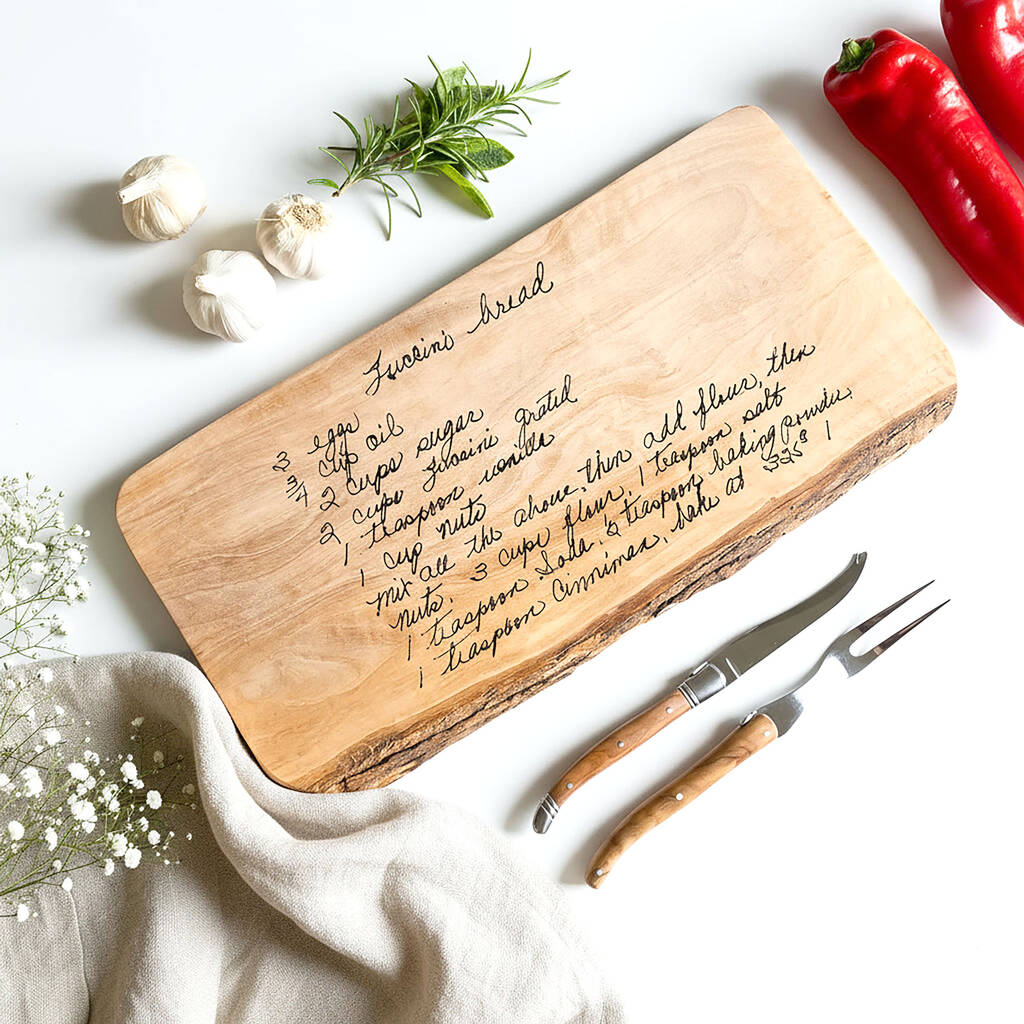 Zuccini bread
3 eggs
3/4 cup oil
2 cups sugar
2 cups Zuccini grated
1 teaspoon vanilla
1 cup nuts
Mix all the above, then add flour, then
nuts. 3 cups flour, 1 teaspoon salt
1 teaspoon Soda, teaspoon baking powder.
1 teaspoon Cinniman, bake at 325° 1